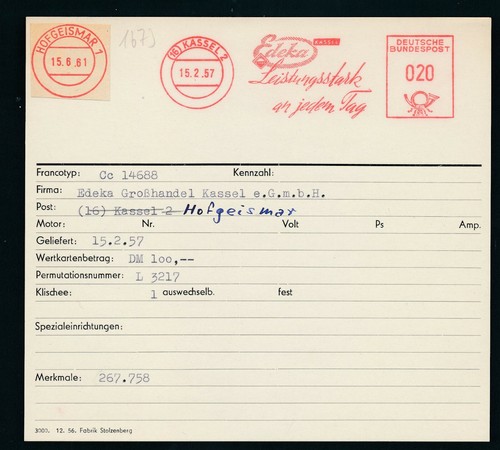 HOFGEISMAR 1
15.6.61
1673
(16) KASSEL 2
15.2.57
Edeka KASSEL
Leistungsstark
an jedem Tag
DEUTSCHE
BUNDESPOST
020
Francotyp: Cc 14688 Kennzahl:
Firma: Edeka Großhandel Kassel e.G.m.b.H.
Post: (16) Kassel 2 Hofgeismar
Motor: Nr. Volt Ps Amp.
Geliefert: 15.2.57
Wertkartenbetrag: DM 100,--
Permutationsnummer: L 3217
Klischee: 1 auswechselb. fest
Spezialeinrichtungen:
Merkmale: 267.758
3000. 12. 56. Fabrik Stolzenberg